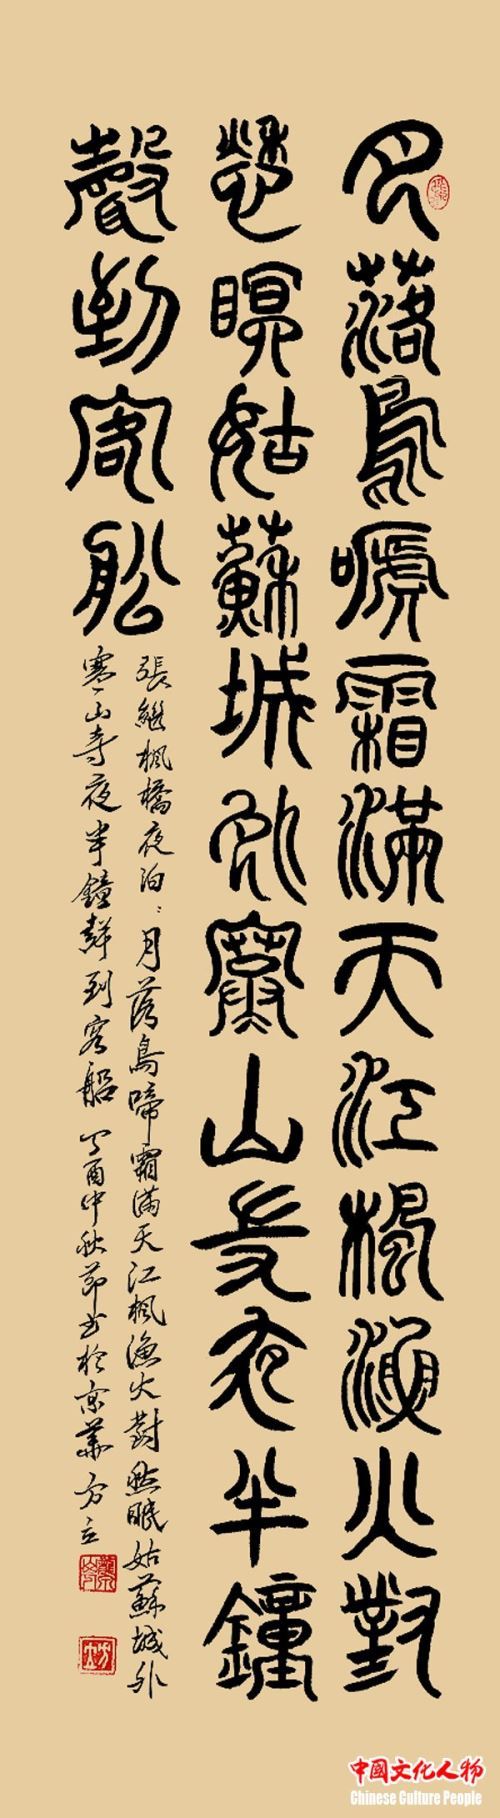 月落烏啼霜滿天江楓漁火對
愁眠姑蘇城外寒山寺夜半鐘
聲到客船
張繼楓橋夜泊：月落烏啼霜滿天江楓漁火對愁眠姑蘇城外
寒山寺夜半鐘聲到客船 丁酉中秋節書於京華方立
中國文化人物
Chinese Culture People